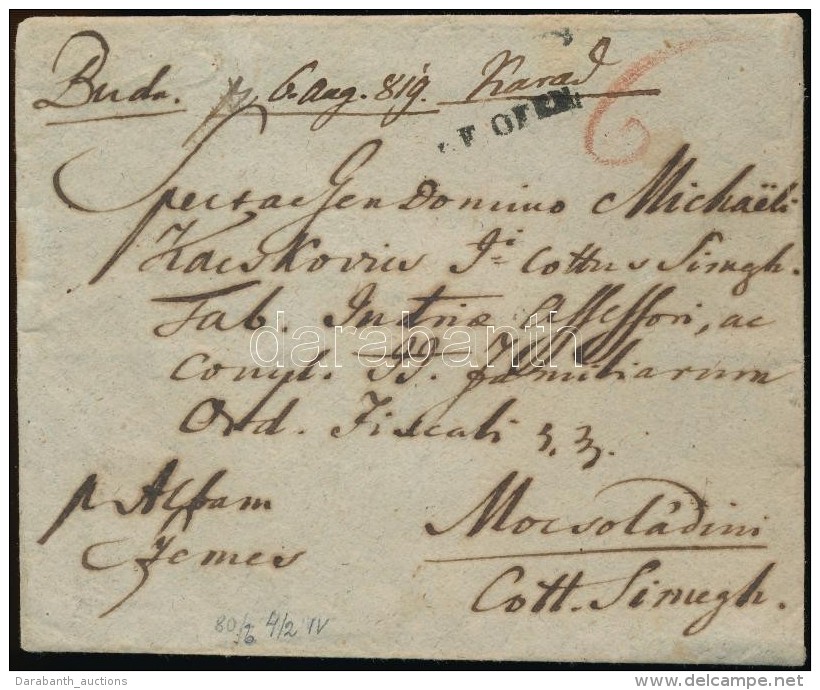 Buda. p 6. Aug. 819. Karad
V. OFEN.
6
Spectae Gen Domino Michaëli
Kacskovics I. Cottus Simegh.
Tab. Jutriæ Assessori, ac
Compl. II. Familiarum
Ord. Fiscali
p Alpam
Jemes
Mocsoládini
Cott. Simegh.
darabanth
80/6 4/2 IV
Darabanth_auctions
www.delcampe.net